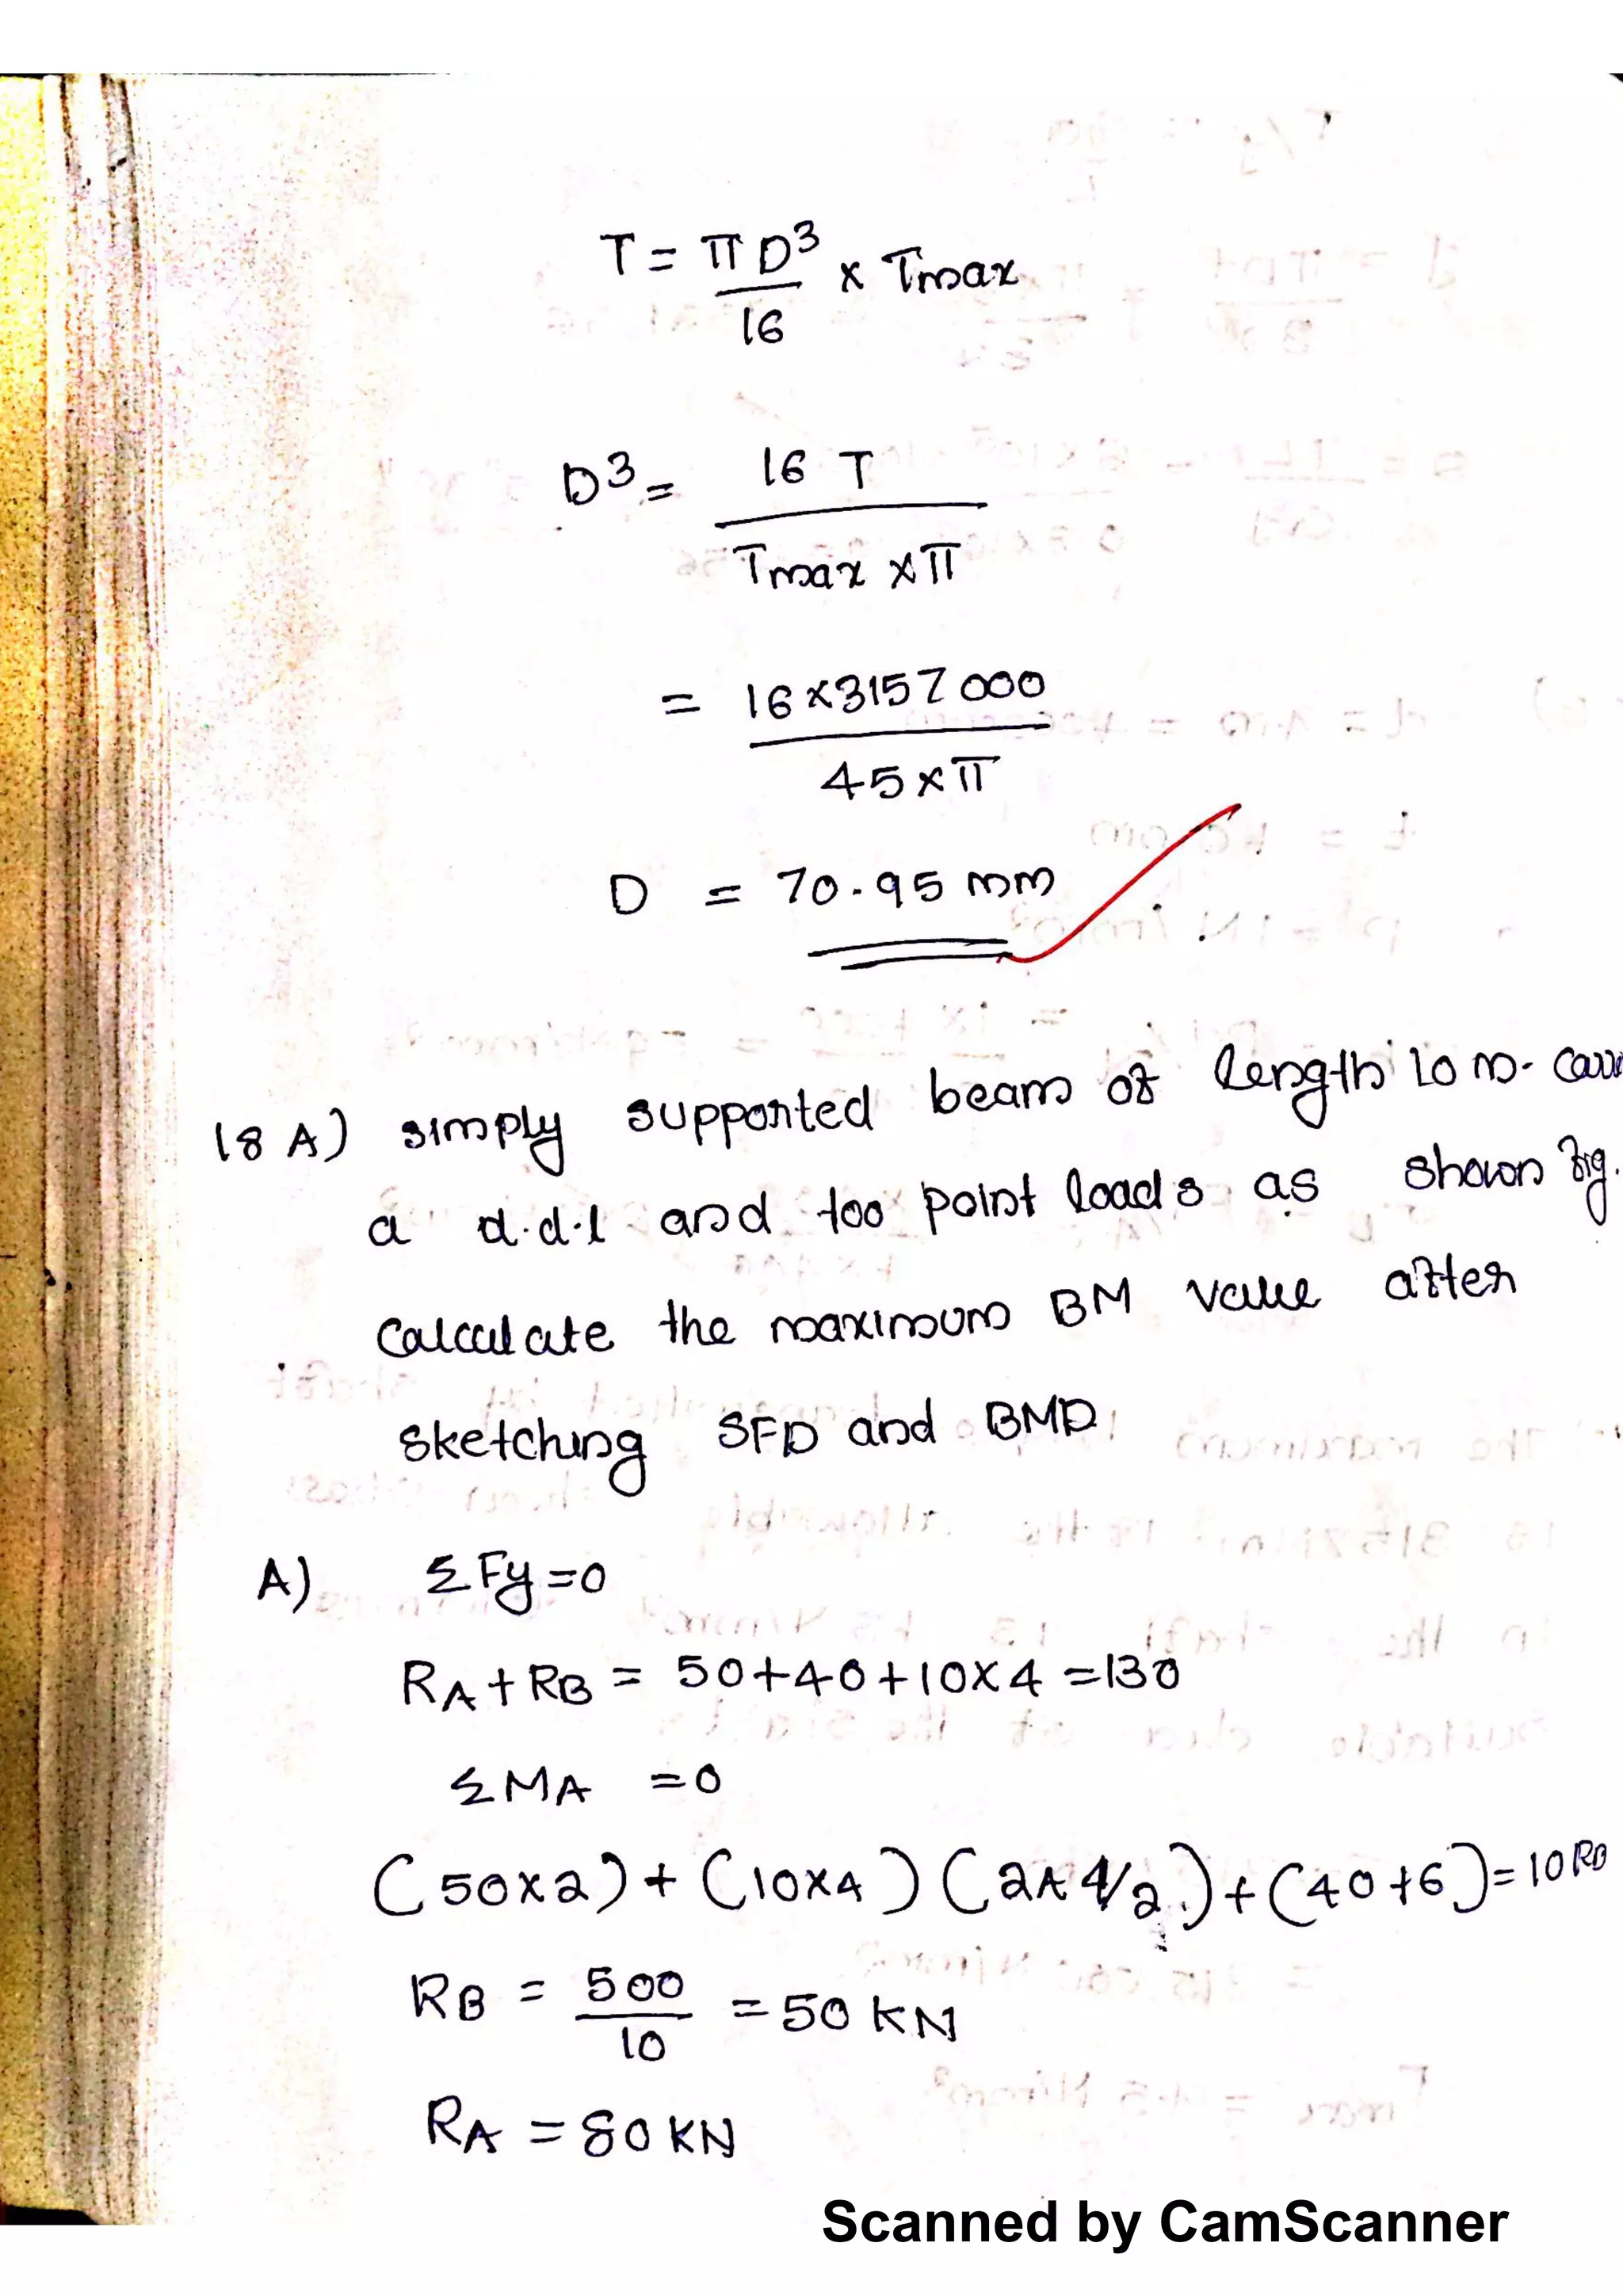 T = πD³/16 × Tmax
D³ = 16 T / Tmax × π
= 16×3157000 / 45×π
D = 70.95 mm
18 A) simply supported beam of length 10 m. carr
a d.d.l and too point loads as shown fig.
Calculate the maximum BM value after
sketching SFD and BMD
A) ΣFy=0
RA+RB = 50+40+10×4 =130
ΣMA =0
(50×2)+(10×4)(2+4/2)+(40+6)=10RB
RB = 500/10 =50 KN
RA = 80KN
Scanned by CamScanner